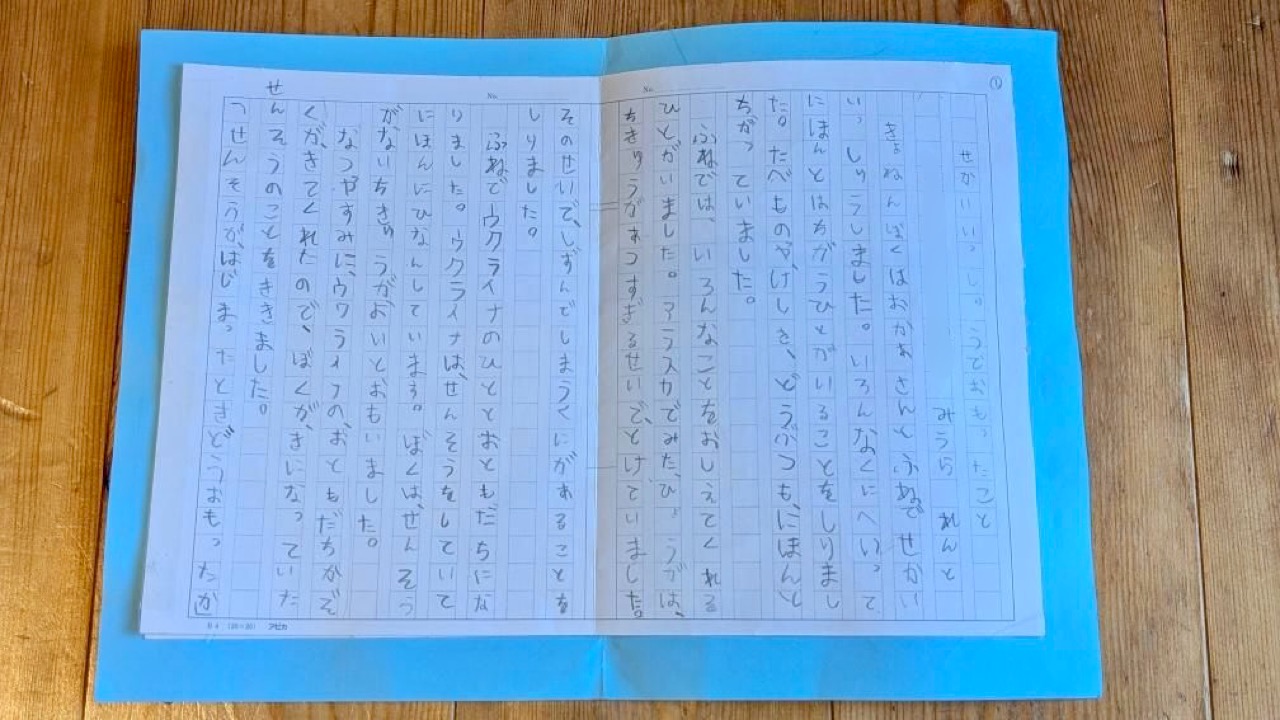 ①
せかいいっしゅうでおもったこと
みうら れんと
きょねんぼくはおかあさんとふねでせかい
いっしゅうしました。いろんなくにへいって
にほんとはちがうひとがいることをしりまし
た。たべものや、けしき、どうぶつも、にほんと
ちがっていました。
ふねでは、いろんなことをおしえてくれる
ひとがいました。アラスカでみた、ひょうがは、
ちきゅうがあつすぎるせいで、とけていました。
そのせいで、しずんでしまうくにがあることを
しりました。
ふねでウクライナのひととおともだちにな
りました。ウクライナは、せんそうをしていて
にほんにひなんしています。ぼくは、せんそう
がないちきゅうがよいとおもいました。
なつやすみに、ウクライナの、おともだちかぞ
くが、きてくれたので、ぼくが、きになっていた
せんそうのことをききました。
「せんそうが、はじまったときどうおもったか」
No.
No.
B4 (20×20) アピカ